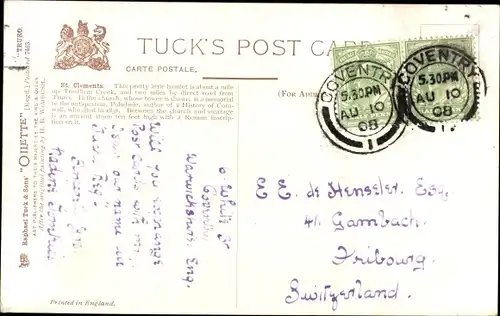 TUCK'S POST CARD
CARTE POSTALE.
St. Clements. This pretty little hamlet is about a mile
up Tresillian Creek, and two miles by direct road from
Truro. In the church, whose tower is shown, is a memorial
to the antiquarian, Polwhele, author of a History of Corn-
wall, who died in 1838. Between the church and vicarage
is an ancient stone ten feet high with a Roman inscrip-
tion on it.
(For
COVENTRY
5.30PM
AU 10
08
1
COVENTRY
5.30PM
AU 10
08
1
"TRURO."
Raphael Tuck & Sons' "OILETTE" (Regd.) Postcard
ART PUBLISHERS TO THEIR MAJESTIES THE KING & QUEEN
Printed in England.
6 White St
Coventry
Warwickshire. Eng.
Will you exchange
Post Cards with me.
Send our name in
E. E. de Henseler. Esq.
41. Gambach.
Fribourg.
Switzerland.